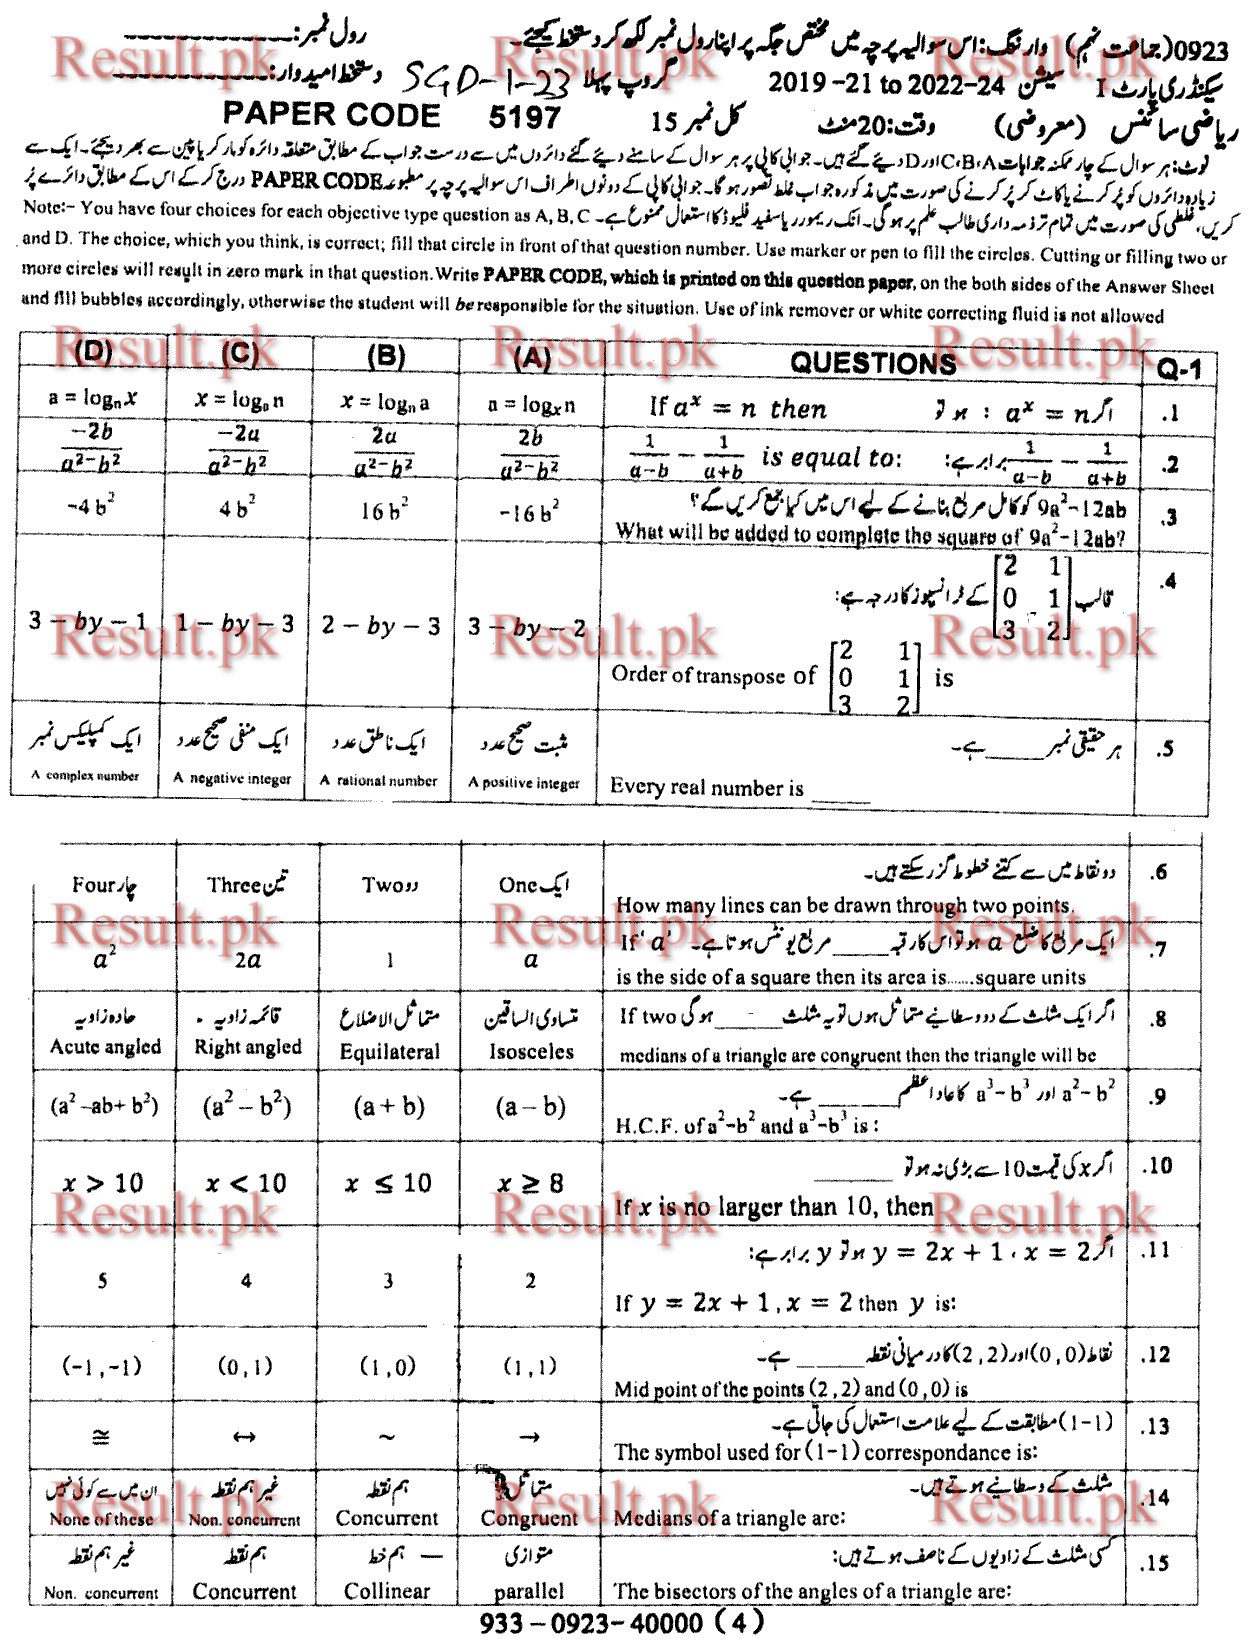 0923(جماعت نہم) وارننگ: اس سوالیہ پرچہ میں مختص جگہ پر اپنا رول نمبر لکھ کر دستخط کیجئے۔ رول نمبر:
سیکنڈری پارٹ I سیشن 2019 -21 to 2022-24 گروپ پہلا SGD-1-23 دستخط امیدوار:
ریاضی سائنس (معروضی) وقت: 20 منٹ کل نمبر 15 PAPER CODE 5197
نوٹ: ہر سوال کے چار ممکنہ جوابات A،B،C اور D دیئے گئے ہیں۔ جوابی کاپی پر ہر سوال کے سامنے دیئے گئے دائروں میں سے درست جواب کے مطابق متعلقہ دائرہ کو مارکر یا پین سے بھر دیجئے۔ ایک سے
زیادہ دائروں کو پُر کرنے یا کاٹ کر پُر کرنے کی صورت میں مذکورہ جواب غلط تصور ہوگا۔ جوابی کاپی کے دونوں اطراف اس سوالیہ پرچہ پر مطبوعہ PAPER CODE درج کر کے اس کے مطابق دائرے پُر
کریں، غلطی کی صورت میں تمام تر ذمہ داری طالب علم پر ہوگی۔ انک ریمور یا سفید فلیوڈ کا استعمال ممنوع ہے۔ Note:- You have four choices for each objective type question as A, B, C
and D. The choice, which you think, is correct; fill that circle in front of that question number. Use marker or pen to fill the circles. Cutting or filling two or
more circles will result in zero mark in that question. Write PAPER CODE, which is printed on this question paper, on the both sides of the Answer Sheet
and fill bubbles accordingly, otherwise the student will be responsible for the situation. Use of ink remover or white correcting fluid is not allowed
(D) (C) (B) (A) QUESTIONS Q-1
a = logₙ x x = logₐ n x = logₙ a a = logₓ n If aˣ = n then اگر aˣ = n ہو تو : .1
-2b/(a²-b²) -2a/(a²-b²) 2a/(a²-b²) 2b/(a²-b²) 1/(a-b) - 1/(a+b) is equal to: 1/(a-b) - 1/(a+b) برابر ہے: .2
-4b² 4b² 16b² -16b² 9a²-12ab کو کامل مربع بنانے کے لیے اس میں کیا جمع کریں گے؟ .3
What will be added to complete the square of 9a²-12ab?
قالب [2 1; 0 1; 3 2] کے ٹرانسپوز کا درجہ ہے: .4
3 - by - 1 1 - by - 3 2 - by - 3 3 - by - 2
Order of transpose of [2 1; 0 1; 3 2] is
ایک کمپلیکس نمبر ایک منفی صحیح عدد ایک ناطق عدد مثبت صحیح عدد ہر حقیقی نمبر ____ ہے۔ .5
A complex number A negative integer A rational number A positive integer Every real number is ____
Four چار Three تین Two دو One ایک دو نقاط میں سے کتنے خطوط گزر سکتے ہیں۔ .6
How many lines can be drawn through two points.
a² 2a 1 a ایک مربع کا ضلع a ہو تو اس کا رقبہ ____ مربع یونٹس ہوتا ہے۔ If 'a' .7
is the side of a square then its area is.......square units
حادہ زاویہ قائمہ زاویہ متماثل الاضلاع متساوی الساقین اگر ایک مثلث کے دو وسطانیے متماثل ہوں تو یہ مثلث ____ ہوگی If two .8
Acute angled Right angled Equilateral Isosceles medians of a triangle are congruent then the triangle will be
(a² -ab+ b²) (a² - b²) (a + b) (a - b) a²-b² اور a³-b³ کا عاد اعظم ____ ہے۔ .9
H.C.F. of a²-b² and a³-b³ is :
x > 10 x < 10 x ≤ 10 x ≥ 8 اگر x کی قیمت 10 سے بڑی نہ ہو تو ____ .10
If x is no larger than 10, then
5 4 3 2 اگر y = 2x + 1 ، x = 2 ہو تو y برابر ہے: .11
If y = 2x + 1 , x = 2 then y is:
(-1 , -1) (0 , 1) (1 , 0) (1 , 1) نقاط (0 , 0) اور (2 , 2) کا درمیانی نقطہ ____ ہے۔ .12
Mid point of the points (2 , 2) and (0 , 0) is
≅ ↔ ~ → (1-1) مطابقت کے لیے علامت استعمال کی جاتی ہے۔ .13
The symbol used for (1-1) correspondance is:
ان میں سے کوئی نہیں غیر ہم نقطہ ہم نقطہ متماثل مثلث کے وسطانیے ہوتے ہیں۔ .14
None of these Non. concurrent Concurrent Congruent Medians of a triangle are:
غیر ہم نقطہ ہم نقطہ ہم خط متوازی کسی مثلث کے زاویوں کے ناصف ہوتے ہیں: .15
Non. concurrent Concurrent Collinear parallel The bisectors of the angles of a triangle are:
933 - 0923 - 40000 ( 4 )
Result.pk